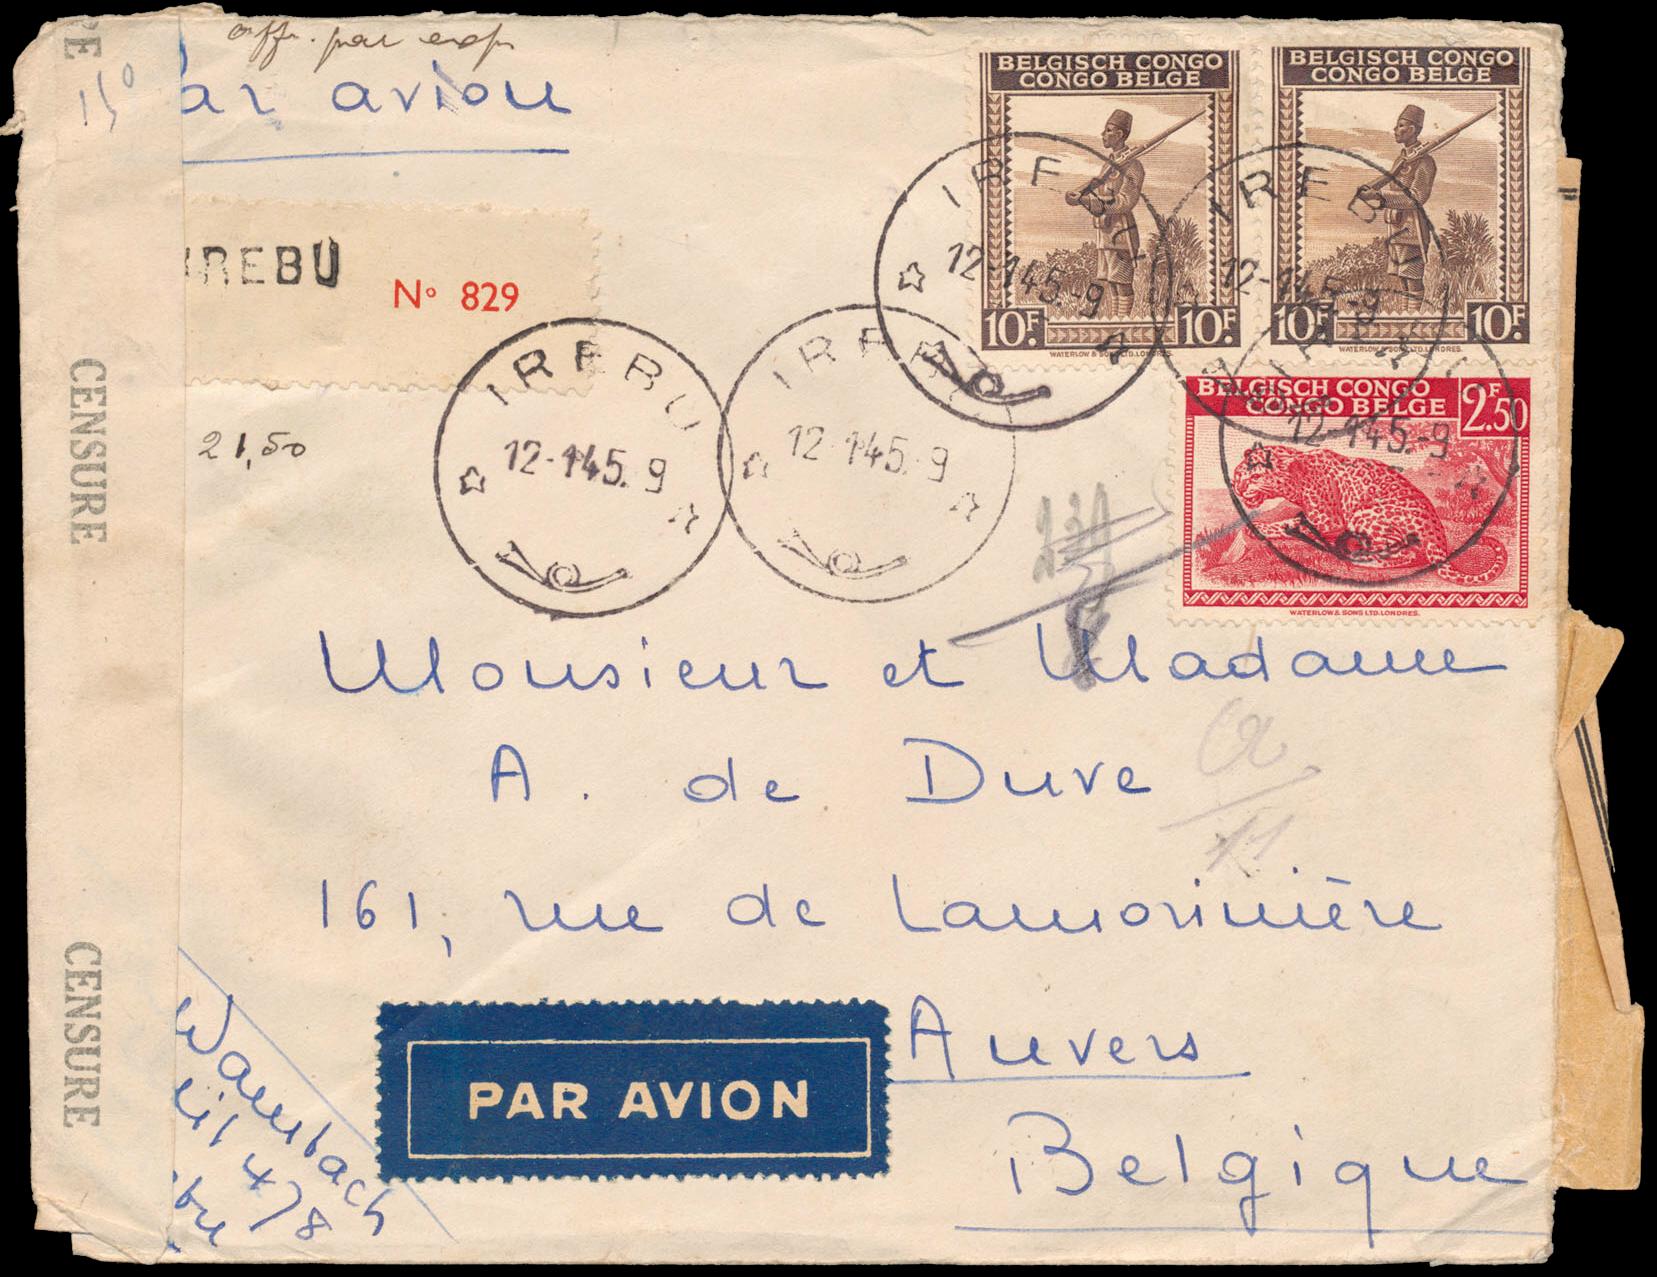 affr. par exp
ar avion
15°
BELGISCH CONGO
CONGO BELGE
10F.
10F.
WATERLOW & SONS LTD. LONDRES.
BELGISCH CONGO
CONGO BELGE
10F.
10F.
WATERLOW & SONS LTD. LONDRES.
IREBU
12-1 45.-9
IREBU
12-1 45.-9
IREBU
Nº 829
BELGISCH CONGO
CONGO BELGE
2.F50
WATERLOW & SONS LTD. LONDRES.
12-1 45.-9
21,50
IREBU
12-1 45. 9
IREBU
12-1 45. 9
CENSURE
CENSURE
Monsieur et Madame
A. de Duve
161, rue de Lamorinière
Anvers
Belgique
PAR AVION
Wambach
478